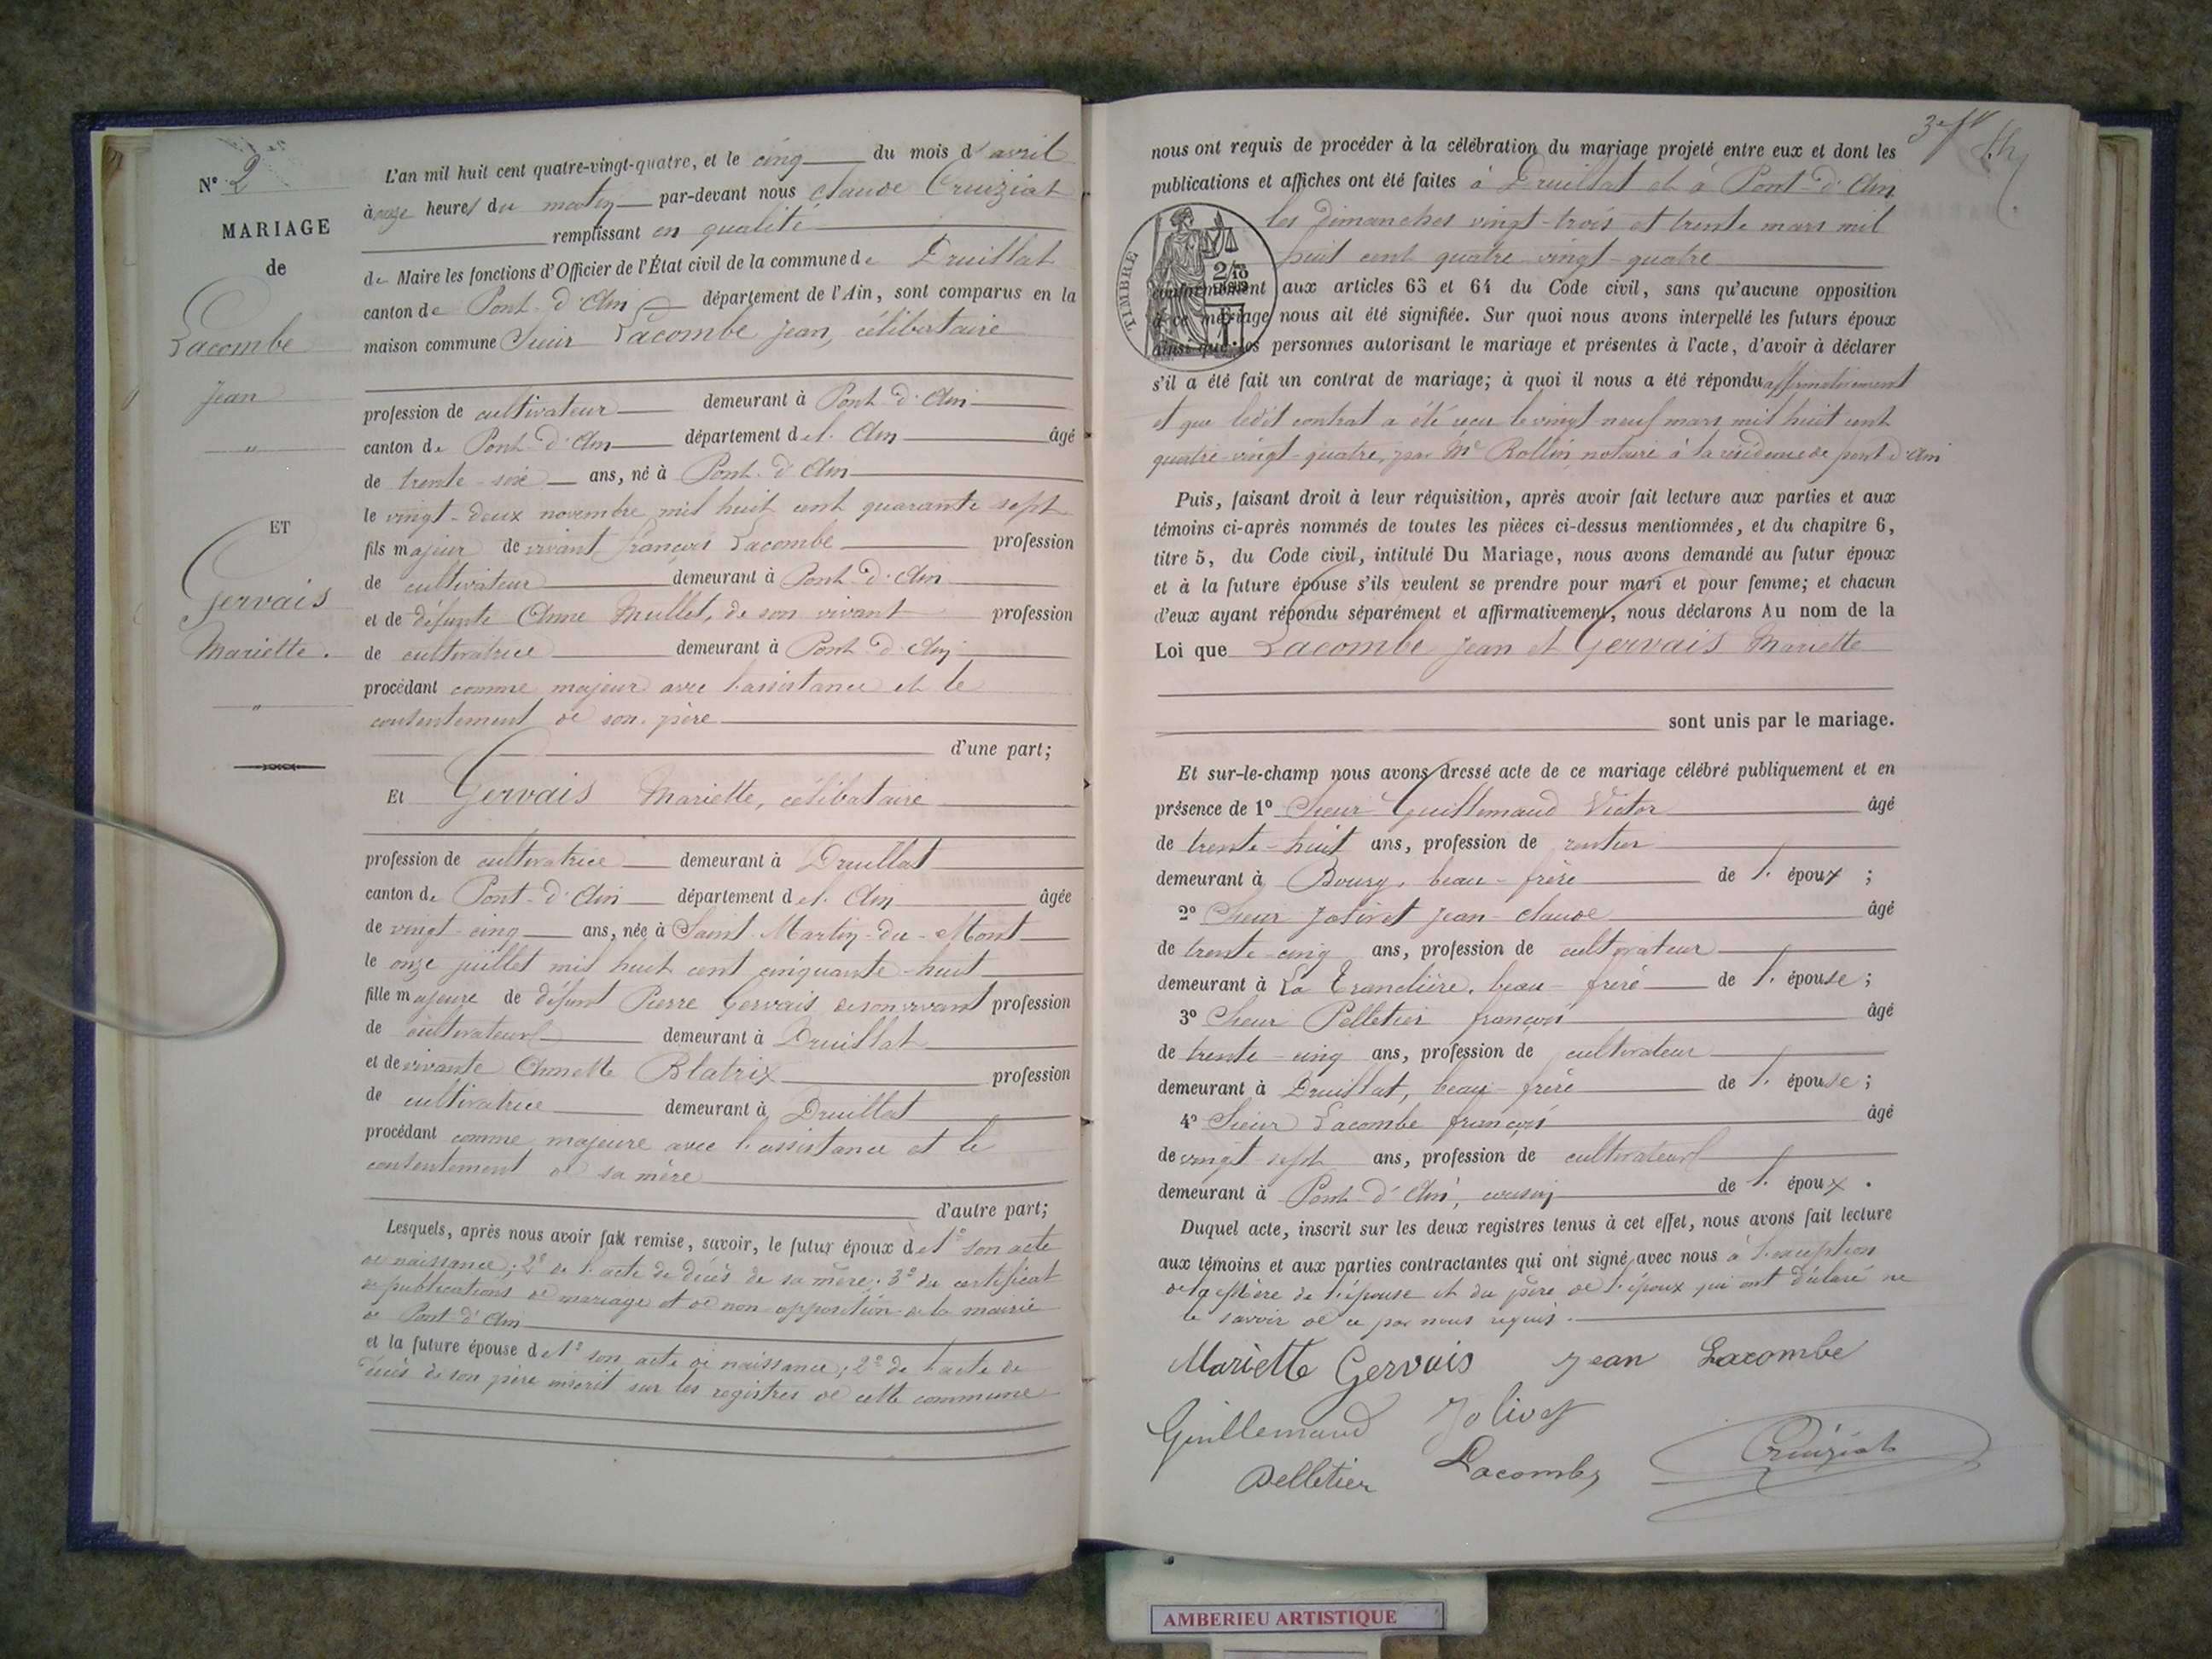 N° 2
MARIAGE
de
Lacombe
Jean
"
ET
Gervais
Mariette.
"
L'an mil huit cent quatre-vingt-quatre, et le cinq du mois d'avril
à onze heures du matin par-devant nous Claude Cruiziat
remplissant en qualité
de Maire les fonctions d'Officier de l'État civil de la commune de Druillat
canton de Pont-d'Ain département de l'Ain, sont comparus en la
maison commune Sieur Lacombe Jean, célibataire
profession de cultivateur demeurant à Pont-d'Ain
canton de Pont-d'Ain département de l'Ain âgé
de trente-six ans, né à Pont-d'Ain
le vingt-deux novembre mil huit cent quarante-sept
fils majeur de vivant françois Lacombe profession
de cultivateur demeurant à Pont-d'Ain
et de défunte Anne Mullet, de son vivant profession
de cultivatrice demeurant à Pont-d'Ain
procédant comme majeur avec l'assistance et le
consentement de son père
d'une part;
Et Gervais Mariette, célibataire
profession de cultivatrice demeurant à Druillat
canton de Pont-d'Ain département de l'Ain âgée
de vingt-cinq ans, née à Saint-Martin-du-Mont
le onze juillet mil huit cent cinquante-huit
fille majeure de défunt Pierre Gervais de son vivant profession
de cultivateur demeurant à Druillat
et de vivante Annette Blatrix profession
de cultivatrice demeurant à Druillat
procédant comme majeure avec l'assistance et le
consentement de sa mère
d'autre part;
Lesquels, après nous avoir fait remise, savoir, le futur époux de 1° son acte
de naissance; 2° de l'acte de décès de sa mère; 3° du certificat
de publications de mariage et de non opposition de la mairie
de Pont-d'Ain
et la future épouse de 1° son acte de naissance; 2° de l'acte de
décès de son père inscrit sur les registres de cette commune
nous ont requis de procéder à la célébration du mariage projeté entre eux et dont les
publications et affiches ont été faites à Druillat et à Pont-d'Ain
les dimanches vingt-trois et trente mars mil
huit cent quatre vingt-quatre
TIMBRE
conformément aux articles 63 et 64 du Code civil, sans qu'aucune opposition
à ce mariage nous ait été signifiée. Sur quoi nous avons interpellé les futurs époux
ainsi que les personnes autorisant le mariage et présentes à l'acte, d'avoir à déclarer
s'il a été fait un contrat de mariage; à quoi il nous a été répondu affirmativement
et que ledit contrat a été reçu le vingt neuf mars mil huit cent
quatre-vingt-quatre, par Me Rollin notaire à la résidence de pont d'ain
Puis, faisant droit à leur réquisition, après avoir fait lecture aux parties et aux
témoins ci-après nommés de toutes les pièces ci-dessus mentionnées, et du chapitre 6,
titre 5, du Code civil, intitulé Du Mariage, nous avons demandé au futur époux
et à la future épouse s'ils veulent se prendre pour mari et pour femme; et chacun
d'eux ayant répondu séparément et affirmativement, nous déclarons Au nom de la
Loi que Lacombe Jean et Gervais Mariette
sont unis par le mariage.
Et sur-le-champ nous avons dressé acte de ce mariage célébré publiquement et en
présence de 1° Sieur Guillemaud Victor âgé
de trente-huit ans, profession de rentier
demeurant à Bourg, beau-frère de l'époux ;
2° Sieur Jolivet Jean-Claude âgé
de trente-cinq ans, profession de cultivateur
demeurant à La Tranclière, beau-frère de l'épouse ;
3° Sieur Pelletier françois âgé
de trente-cinq ans, profession de cultivateur
demeurant à Druillat, beau-frère de l'épouse ;
4° Sieur Lacombe françois âgé
de vingt-sept ans, profession de cultivateur
demeurant à Pont-d'Ain, cousin de l'époux .
Duquel acte, inscrit sur les deux registres tenus à cet effet, nous avons fait lecture
aux témoins et aux parties contractantes qui ont signé avec nous à l'exception
de la mère de l'épouse et du père de l'époux qui ont déclaré ne
le savoir de ce par nous requis.
Mariette Gervais Jean Lacombe
Guillemaud Jolivet
Pelletier Lacombe Cruiziat
AMBERIEU ARTISTIQUE